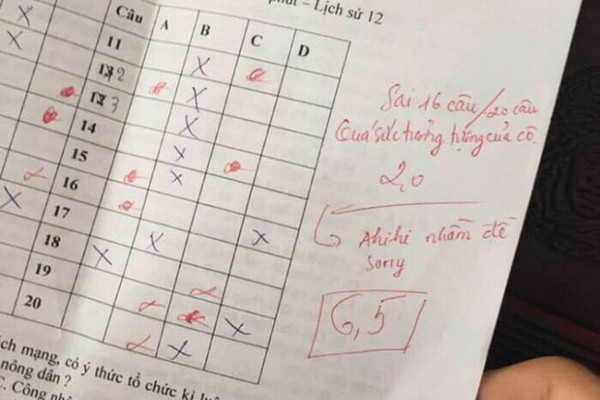 – Lịch sử 12
Câu A B C D
11
12
13
14
15
16
17
18
19
20
Sai 16 câu/20 câu
Quá sức tưởng tượng của cô.
2,0
Ahihi nhầm đề
sorry
6,5
ch mạng, có ý thức tổ chức kỉ
nông dân ?
C. Công